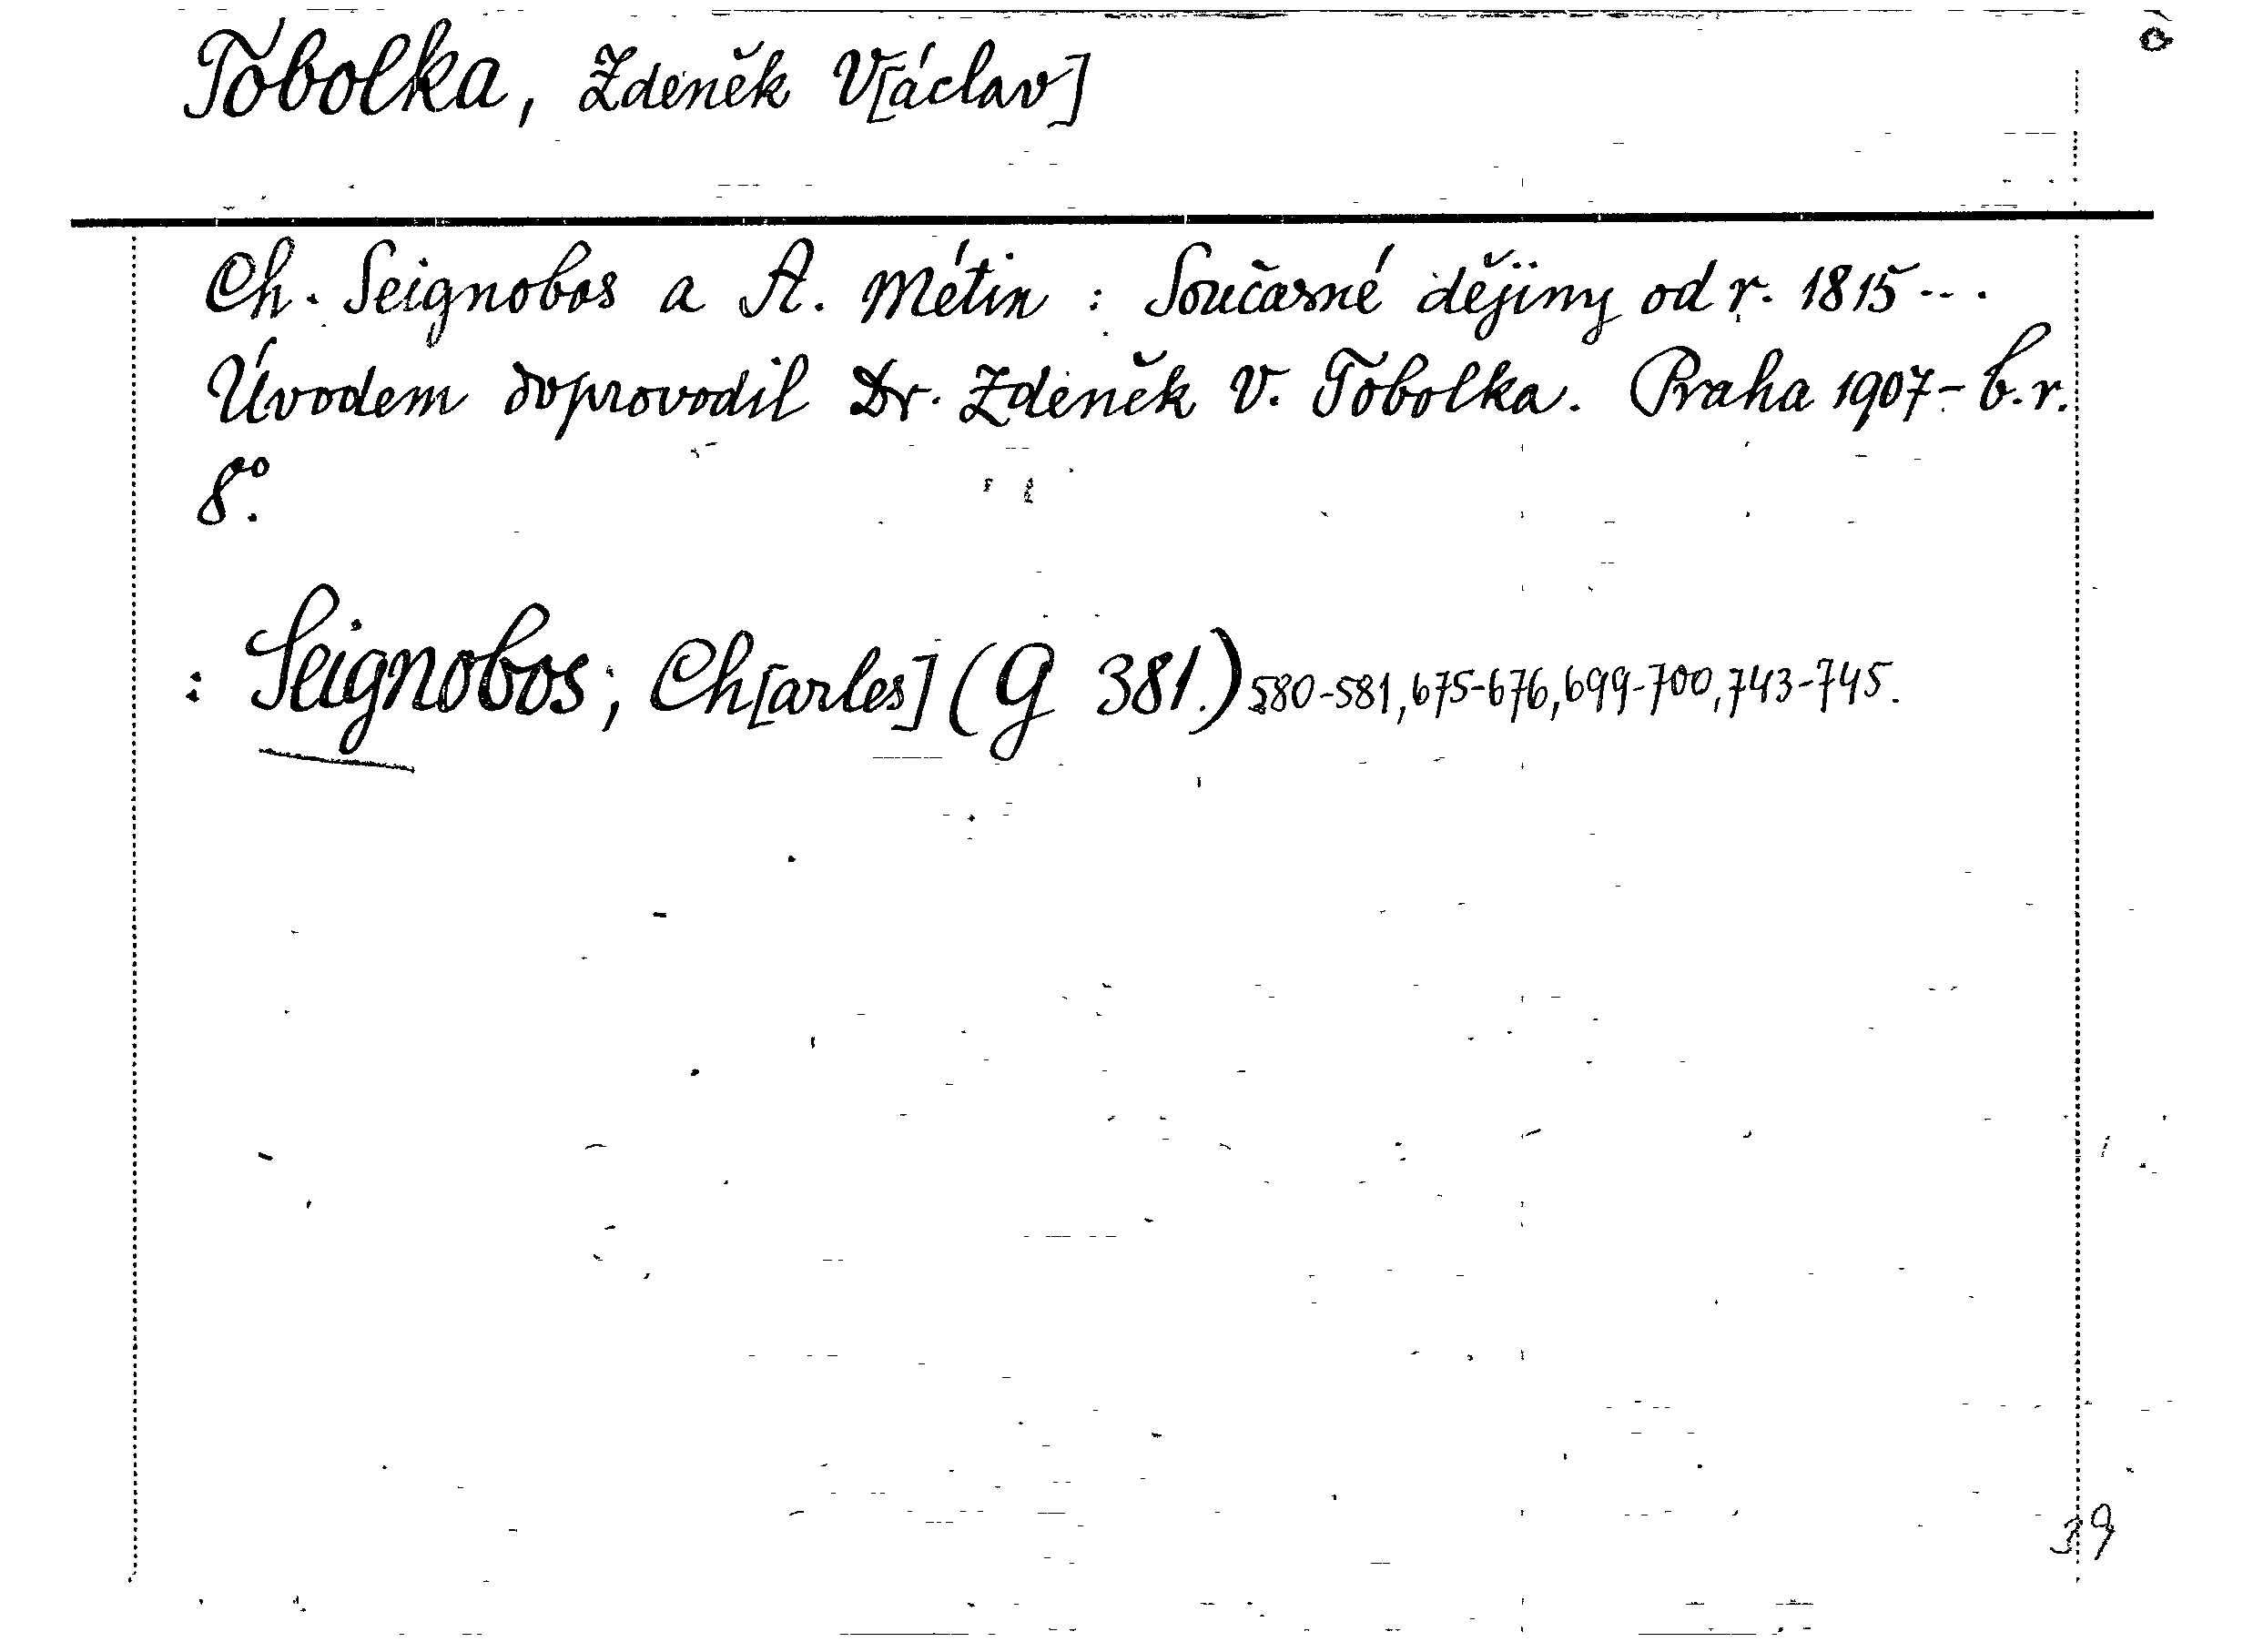 Tobolka, Zdeněk V[áclav]
Ch. Seignobos a A. Métin : Současné dějiny od r. 1815...
Úvodem doprovodil Dr. Zdeněk V. Tobolka. Praha 1907- b.r.
8°.
: Seignobos, Ch[arles] (G 381.) 580-581, 675-676, 699-700, 743-745.
39